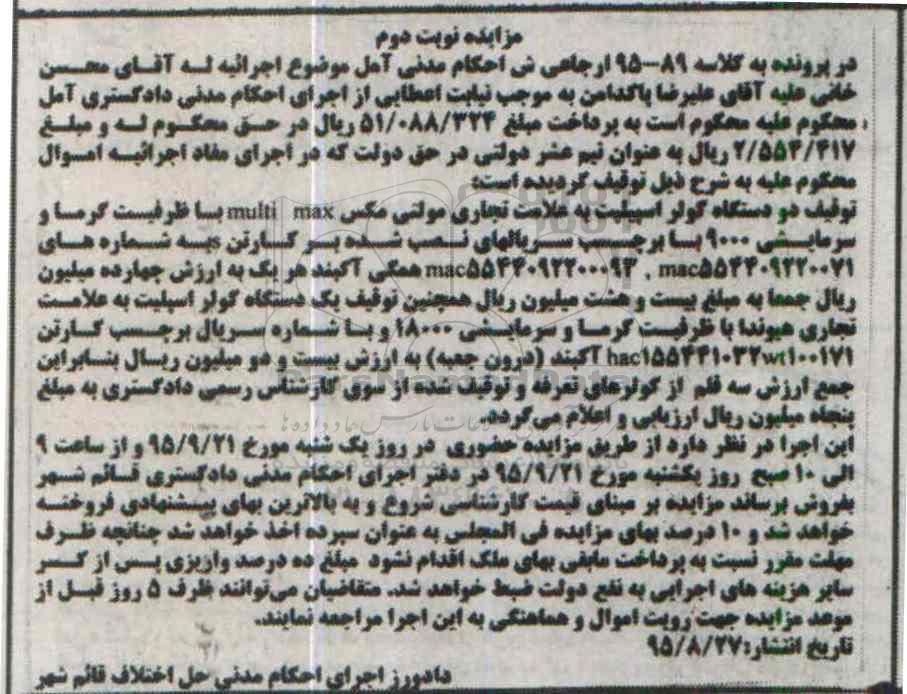 مزایده نوبت دوم
در پرونده به کلاسه ۸۹–۹۵ ارجاعی ش احکام مدنی آمل موضوع اجرائیه له آقای محسن
خانی علیه آقای علیرضا پاکدامن به موجب نیابت اعطایی از اجرای احکام مدنی دادگستری آمل
محکوم علیه محکوم است به پرداخت مبلغ ۵۱/۰۸۸/۳۲۴ ریال در حق محکوم له و مبلغ
۲/۵۵۴/۴۱۷ ریال به عنوان نیم عشر دولتی در حق دولت که در اجرای مفاد اجرائیه اموال
محکوم علیه به شرح ذیل توقیف گردیده است:
توقیف دو دستگاه کولر اسپیلیت به علامت تجاری مولتی مکس multi max با ظرفیت گرما و
سرمایشی ۹۰۰۰ با برچسب سریالهای نصب شده بر کارتن sبه شماره های
mac۵۵۴۴۰۹۲۲۰۰۷۱ , mac۵۵۴۴۰۹۲۲۰۰۰۹۳ همگی آکبند هر یک به ارزش چهارده میلیون
ریال جمعا به مبلغ بیست و هشت میلیون ریال همچنین توقیف یک دستگاه کولر اسپلیت به علامت
تجاری هیوندا با ظرفیت گرما و سرمایشی ۱۸۰۰۰ و با شماره سریال برچسب کارتن
hac۱۵۵۴۴۱۰۳۲wt۱۰۰۱۷۱ آکبند (درون جعبه) به ارزش بیست و دو میلیون ریال بنابراین
جمع ارزش سه قلم از کولرهای تعرفه و توقیف شده از سوی کارشناس رسمی دادگستری به مبلغ
پنجاه میلیون ریال ارزیابی و اعلام می گردد.
این اجرا در نظر دارد از طریق مزایده حضوری در روز یک شنبه مورخ ۹۵/۹/۲۱ و از ساعت ۹
الی ۱۰ صبح روز یکشنبه مورخ ۹۵/۹/۲۱ در دفتر اجرای احکام مدنی دادگستری قائم شهر
بفروش برساند مزایده بر مبنای قیمت کارشناسی شروع و به بالاترین بهای پیشنهادی فروخته
خواهد شد و ۱۰ درصد بهای مزایده فی المجلس به عنوان سپرده اخذ خواهد شد چنانچه ظرف
مهلت مقرر نسبت به پرداخت مابقی بهای ملک اقدام نشود مبلغ ده درصد واریزی پس از کسر
سایر هزینه های اجرایی به نفع دولت ضبط خواهد شد. متقاضیان می توانند ظرف ۵ روز قبل از
موعد مزایده جهت رویت اموال و هماهنگی به این اجرا مراجعه نمایند.
تاریخ انتشار: ۹۵/۸/۲۷
دادورز اجرای احکام مدنی حل اختلاف قائم شهر